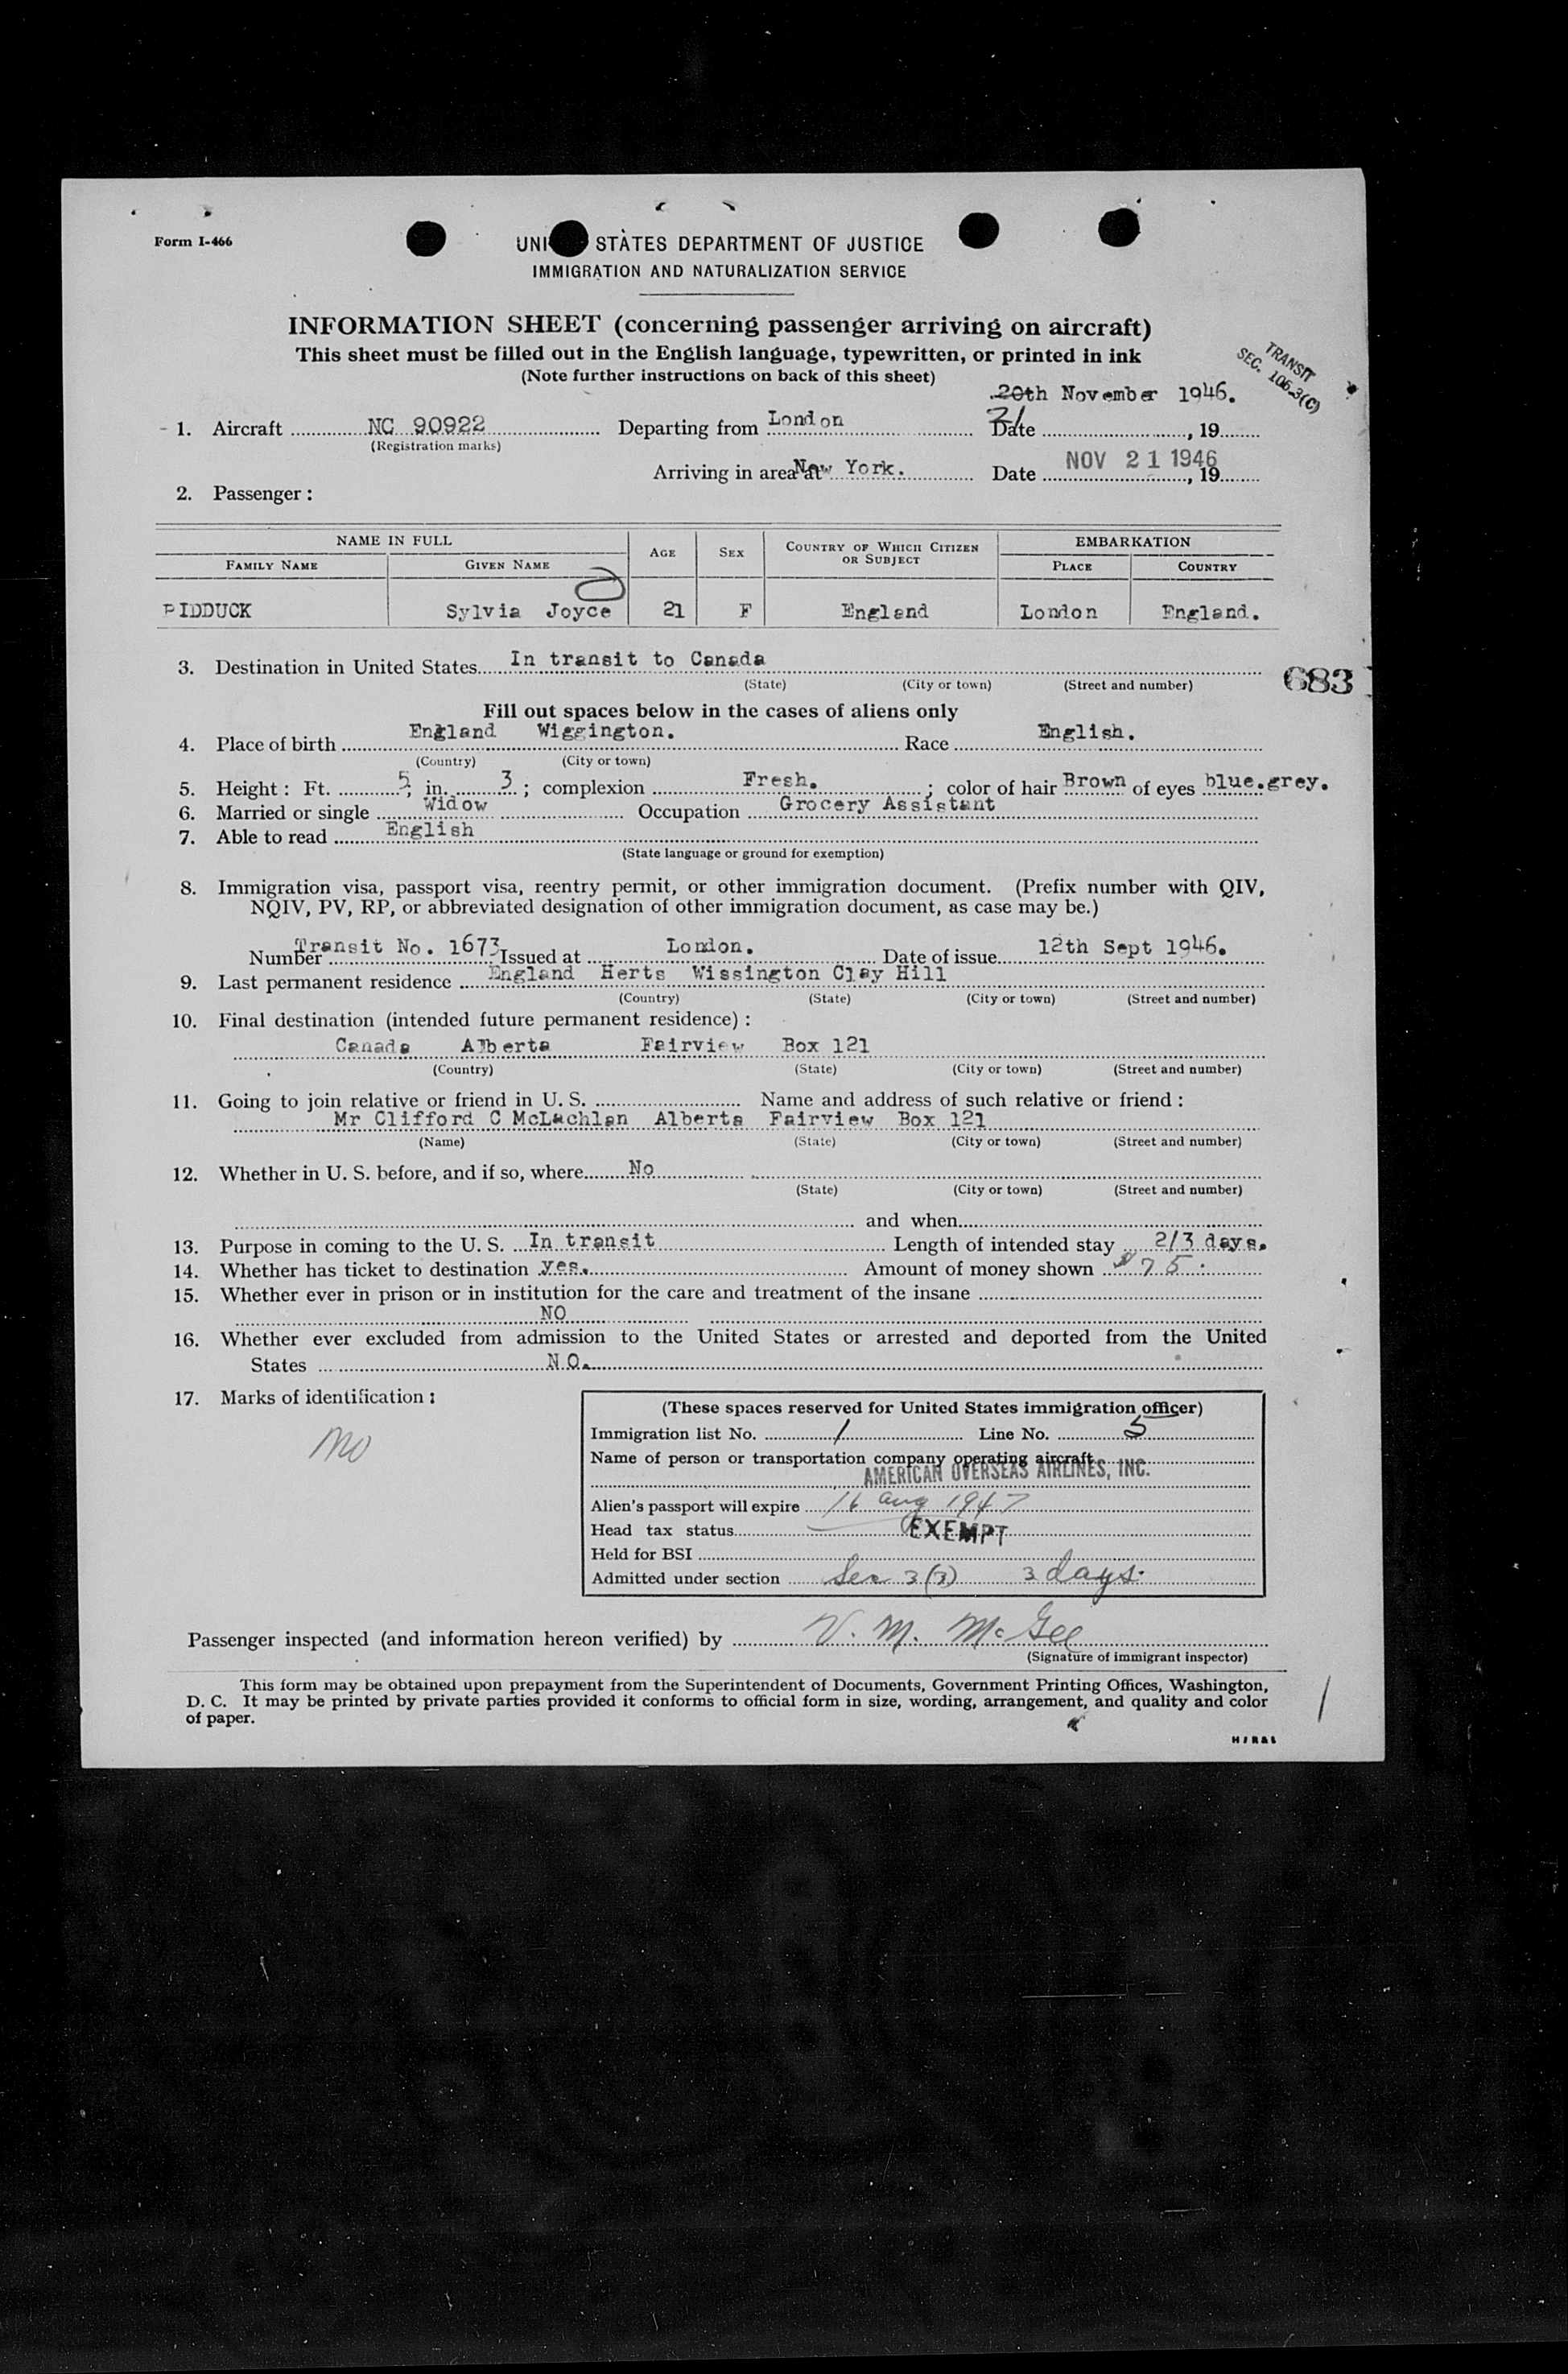 Form I-466
UNI STATES DEPARTMENT OF JUSTICE
IMMIGRATION AND NATURALIZATION SERVICE
INFORMATION SHEET (concerning passenger arriving on aircraft)
This sheet must be filled out in the English language, typewritten, or printed in ink
(Note further instructions on back of this sheet)
TRANSIT
SEC. 106.3(C)
20th November 1946.
21
1. Aircraft NC 90922 Departing from London Date , 19
(Registration marks)
Arriving in area at New York. Date NOV 21 1946 , 19
2. Passenger:
NAME IN FULL AGE SEX COUNTRY OF WHICH CITIZEN OR SUBJECT EMBARKATION
FAMILY NAME GIVEN NAME PLACE COUNTRY
PIDDUCK Sylvia Joyce 21 F England London England.
3. Destination in United States In transit to Canada
(State) (City or town) (Street and number)
683
Fill out spaces below in the cases of aliens only
4. Place of birth England Wiggington. Race English.
(Country) (City or town)
5. Height: Ft. 5, in. 3; complexion Fresh.; color of hair Brown of eyes blue.grey.
6. Married or single Widow Occupation Grocery Assistant
7. Able to read English
(State language or ground for exemption)
8. Immigration visa, passport visa, reentry permit, or other immigration document. (Prefix number with QIV,
NQIV, PV, RP, or abbreviated designation of other immigration document, as case may be.)
Number Transit No. 1673 Issued at London. Date of issue 12th Sept 1946.
9. Last permanent residence England Herts Wissington Clay Hill
(Country) (State) (City or town) (Street and number)
10. Final destination (intended future permanent residence):
Canada Alberta Fairview Box 121
(Country) (State) (City or town) (Street and number)
11. Going to join relative or friend in U. S. Name and address of such relative or friend:
Mr Clifford C McLachlan Alberta Fairview Box 121
(Name) (State) (City or town) (Street and number)
12. Whether in U. S. before, and if so, where No
(State) (City or town) (Street and number)
and when
13. Purpose in coming to the U. S. In transit Length of intended stay 2/3 days.
14. Whether has ticket to destination yes. Amount of money shown $75.
15. Whether ever in prison or in institution for the care and treatment of the insane
NO
16. Whether ever excluded from admission to the United States or arrested and deported from the United
States NO.
17. Marks of identification:
no
(These spaces reserved for United States immigration officer)
Immigration list No. 1 Line No. 5
Name of person or transportation company operating aircraft
AMERICAN OVERSEAS AIRLINES, INC.
Alien's passport will expire 16 Aug 1947
Head tax status EXEMPT
Held for BSI
Admitted under section Sec 3(3) 3 days.
Passenger inspected (and information hereon verified) by V. M. McGee
(Signature of immigrant inspector)
This form may be obtained upon prepayment from the Superintendent of Documents, Government Printing Offices, Washington,
D. C. It may be printed by private parties provided it conforms to official form in size, wording, arrangement, and quality and color
of paper.
1